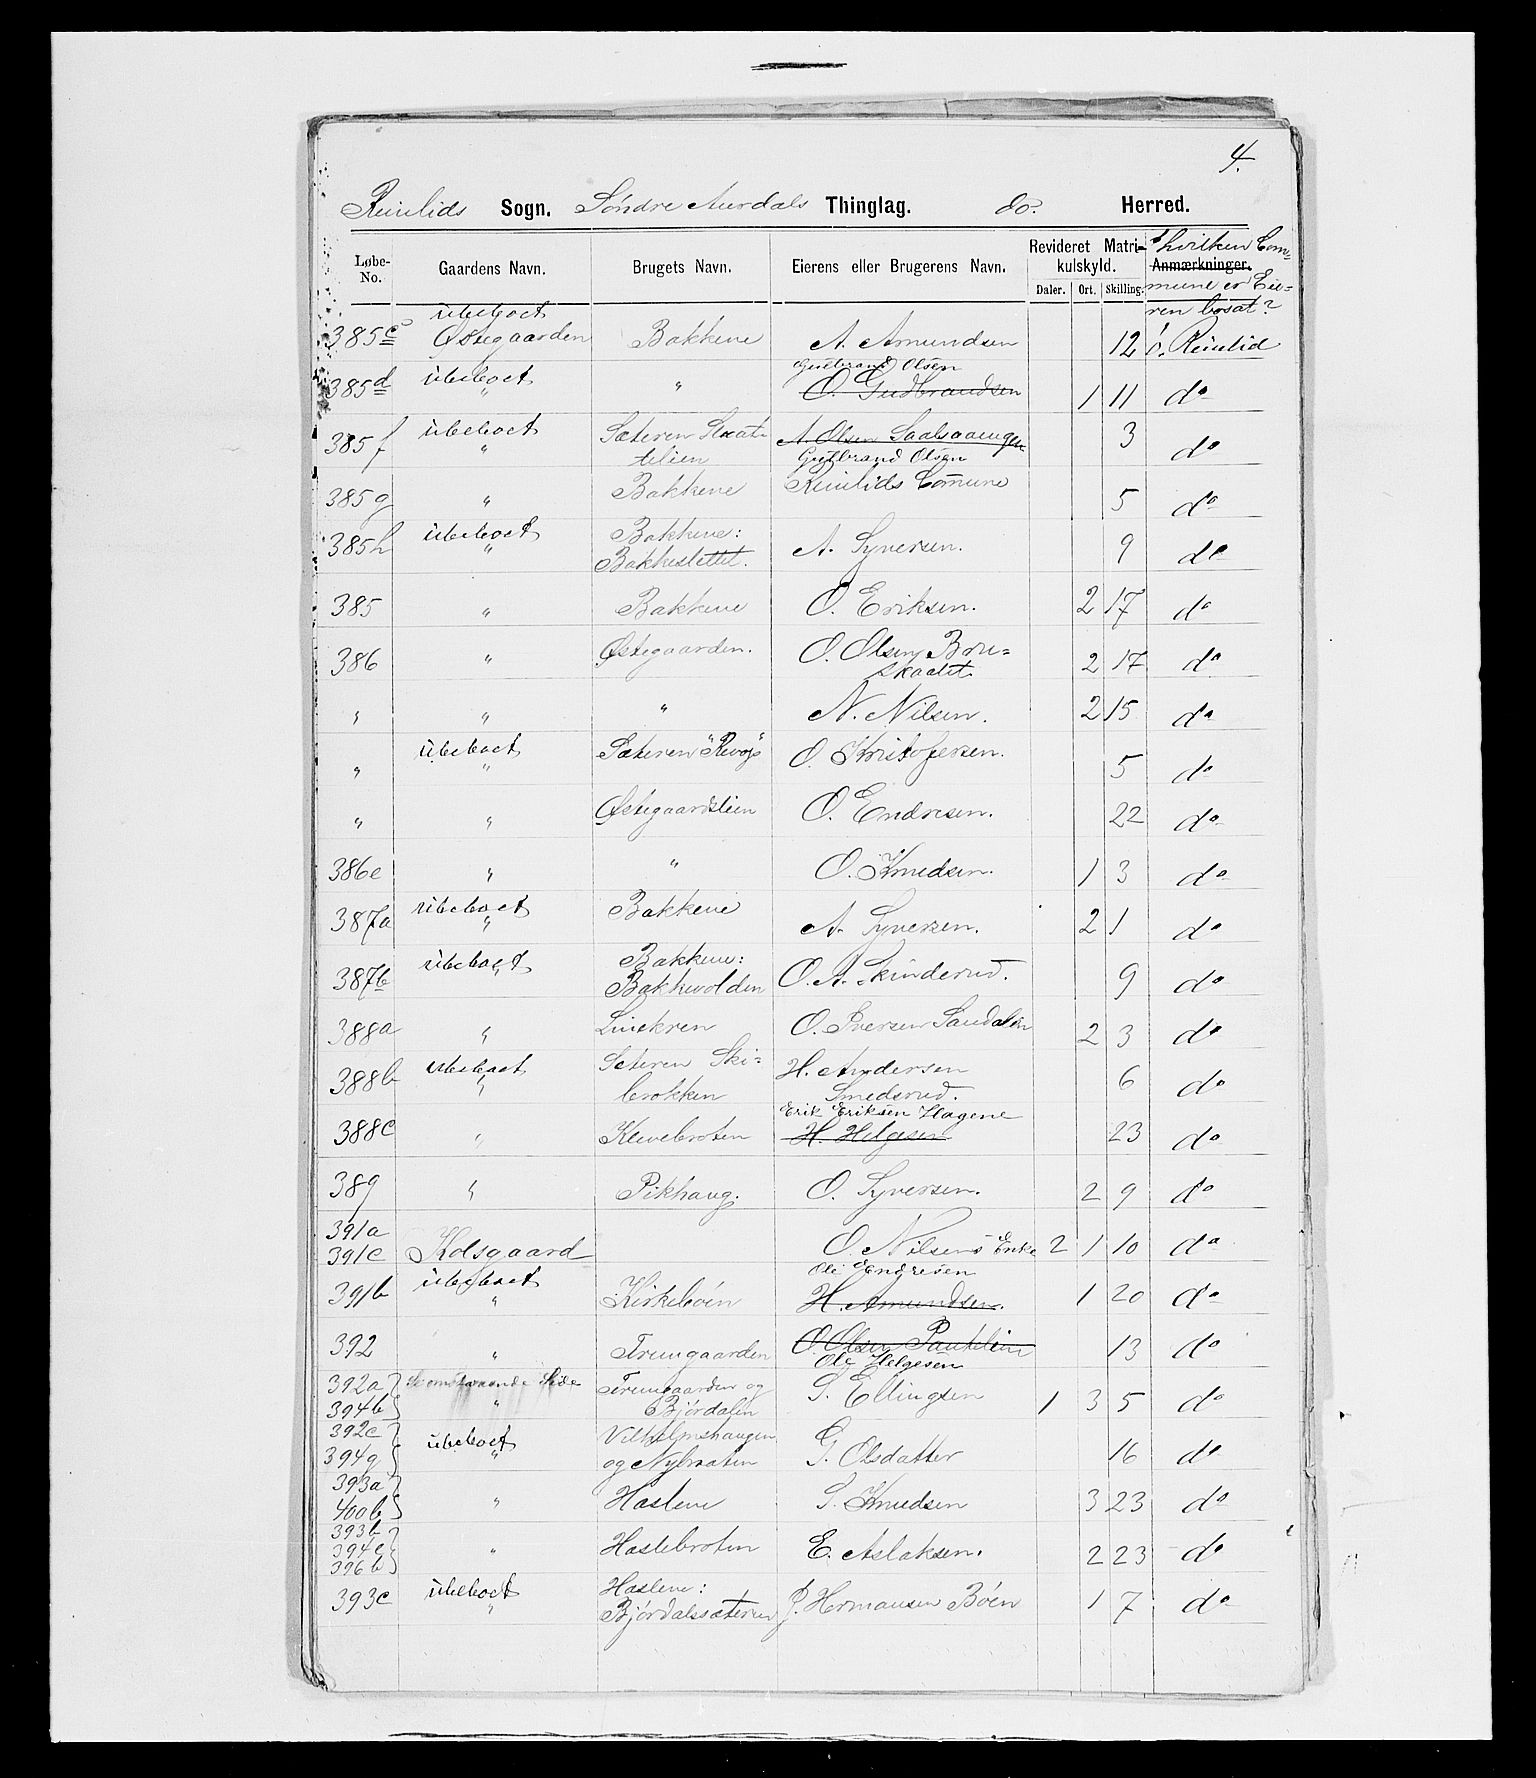 4.
Reinlids Sogn. Søndre Aurdals Thinglag. do. Herred.
Løbe-No. Gaardens Navn. Brugets Navn. Eierens eller Brugerens Navn. Revideret Matrikulskyld. Daler. Ort. Skilling. Anmærkninger. I hvilken Commune er Eieren bosat?
ubeboet
385c Østegaarden Bakkene A. Amundsen 12 i Reinlid
ubeboet Gulbrand Olsen
385d " " O. Gudbrandsen 1 11 do
385f ubeboet Sæteren A. Olsen 3 do
" tilien Gulbrand Olsen
385g " Bakkene Reinlids Comune 5 do
385h ubeboet Bakkene: A. Syversen. 9 do
" Bakkeslettet.
385 " Bakkene O. Eriksen. 2 17 do
386 " Østegaarden. O. Olsen Bru=
skadet 2 17 do
" " " N. Nilsen. 2 15 do
ubeboet Sæteren
" " O. Kristofersen. 5 do
" " Østegaardslien O. Endresen. 22 do
386e " " O. Knudsen. 1 3 do
ubeboet Bakkene
387a " A. Syversen. 2 1 do
ubeboet Bakkene:
387b " Bakkevolden O. A. Skinderud. 9 do
388a " O. Iversen 2 3 do
ubeboet Sæteren Ski= H. Andersen
388b " brokken Smedsrud. 6 do
Erik Eriksen Hagene
388c " Klevebroten H. Helgesen 23 do
389 " Pikhaug. O. Syversen. 2 9 do
391a
391c Kolsgaard O. Nilsens Enke 2 1 10 do
ubeboet Ole Endresen
391b " Kirkebøen H. Amundsen. 1 20 do
392 " Trungaarden O. Olsen 13 do
Ole Helgesen
392a Se omstaaende Side Trungaarden og
394b " Bjørdalen G. Ellingsen 1 3 5 do
392c ubeboet Vilhelmshaugen
394g " og Nybraaten G. Olsdatter 16 do
393a
400b " Haslene S. Knudsen 3 23 do
393b
394c " Haslebroten E. Aslaksen. 2 23 do
396b
ubeboet Haslene:
393c " Bjørdalssæteren P. Hermansen Bøen 1 7 do